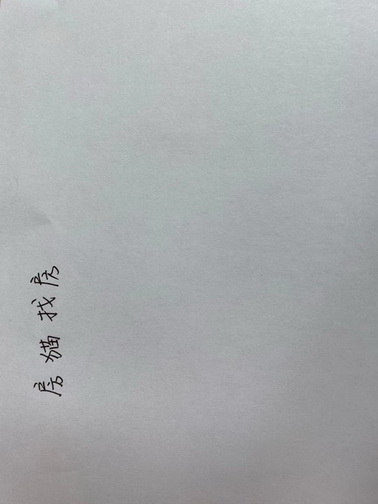 房猫找房